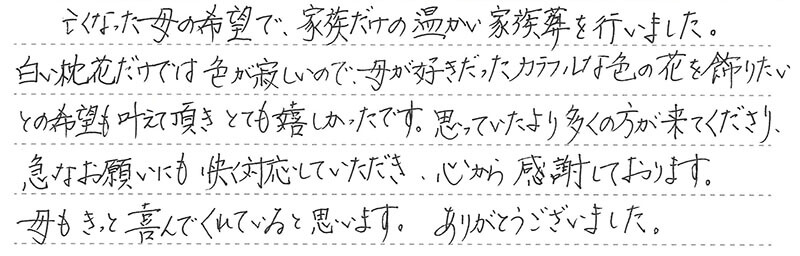 亡くなった母の希望で、家族だけの温かい家族葬を行いました。
白い枕花だけでは色が寂しいので、母が好きだったカラフルな色の花を飾りたい
との希望も叶えて頂きとても嬉しかったです。思っていたより多くの方が来てくださり、
急なお願いにも快く対応していただき、心から感謝しております。
母もきっと喜んでくれていると思います。 ありがとうございました。